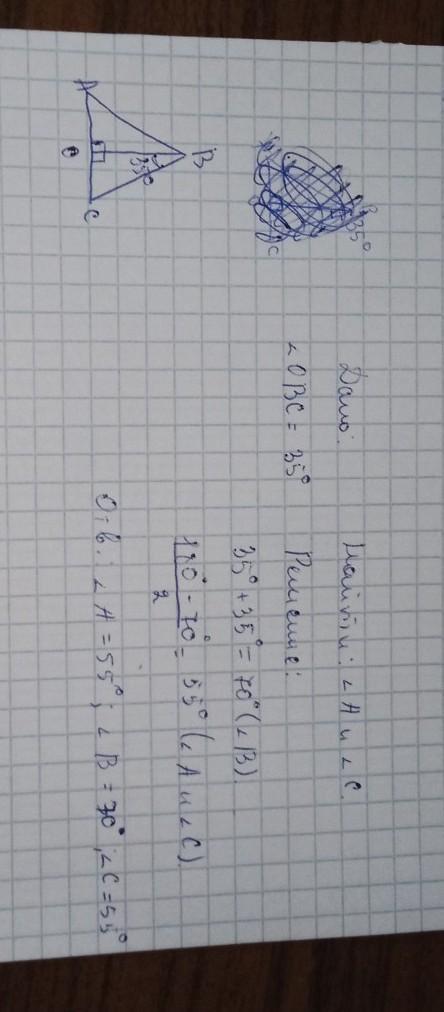 A
B
C
O
35°
B
35°
C
Дано:
∠OBC = 35°
Найти: ∠A и ∠C.
Решение:
35° + 35° = 70° (∠B).
180° - 70°
2
= 55° (∠A и ∠C).
От-в.: ∠A = 55°; ∠B = 70°; ∠C = 55°